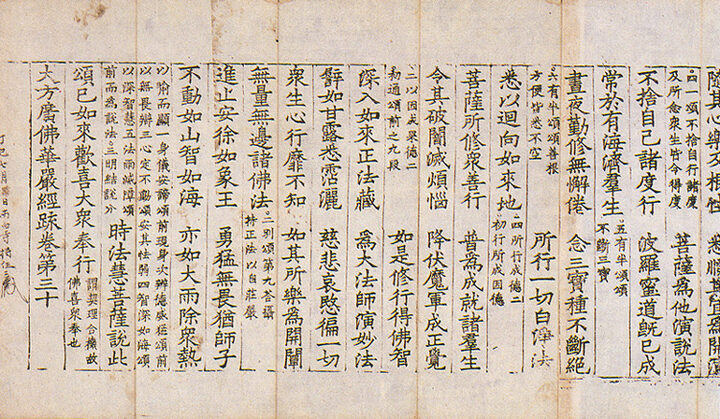 隨其心樂 悉順其宜為開演
四一頌不捨自行諸度
及所念眾生皆令得度 菩薩為他演說法
不捨自己諸度行 波羅蜜道旣已成
常於有海濟羣生 五有半頌頌
不斷三寶
晝夜勤修無懈倦 令三寶種不斷絕
所行一切白淨法
六有半頌頌善根
方便皆悉不空
悉以迴向如來地 四所行成德二
初行所成因德
菩薩所修眾善行 普為成就諸羣生
令其破闇滅煩惱 降伏魔軍成正覺
二以因成果德二
初通頌前之九段 如是修行得佛智
深入如來正法藏 為大法師演妙法
譬如甘露悉霑灑 慈悲哀愍徧一切
眾生心行靡不知 如其所樂為開闡
無量無邊諸佛法 二別頌第九荅攝
持正法以自莊嚴
進止安徐如象王 勇猛無畏猶師子
不動如山智如海 亦如大雨除眾熱
以喻而顯一身儀安諦頌前現身次辨德威猛頌前
以無畏辯三心定不動頌安其怯弱四智深如海頌
以深智慧五法雨滅障頌
前而為說法二明結說分 時法慧菩薩說此
頌已如來歡喜大眾奉行 謂契理合機故
佛喜眾奉也
大方廣佛華嚴經䟽卷第三十